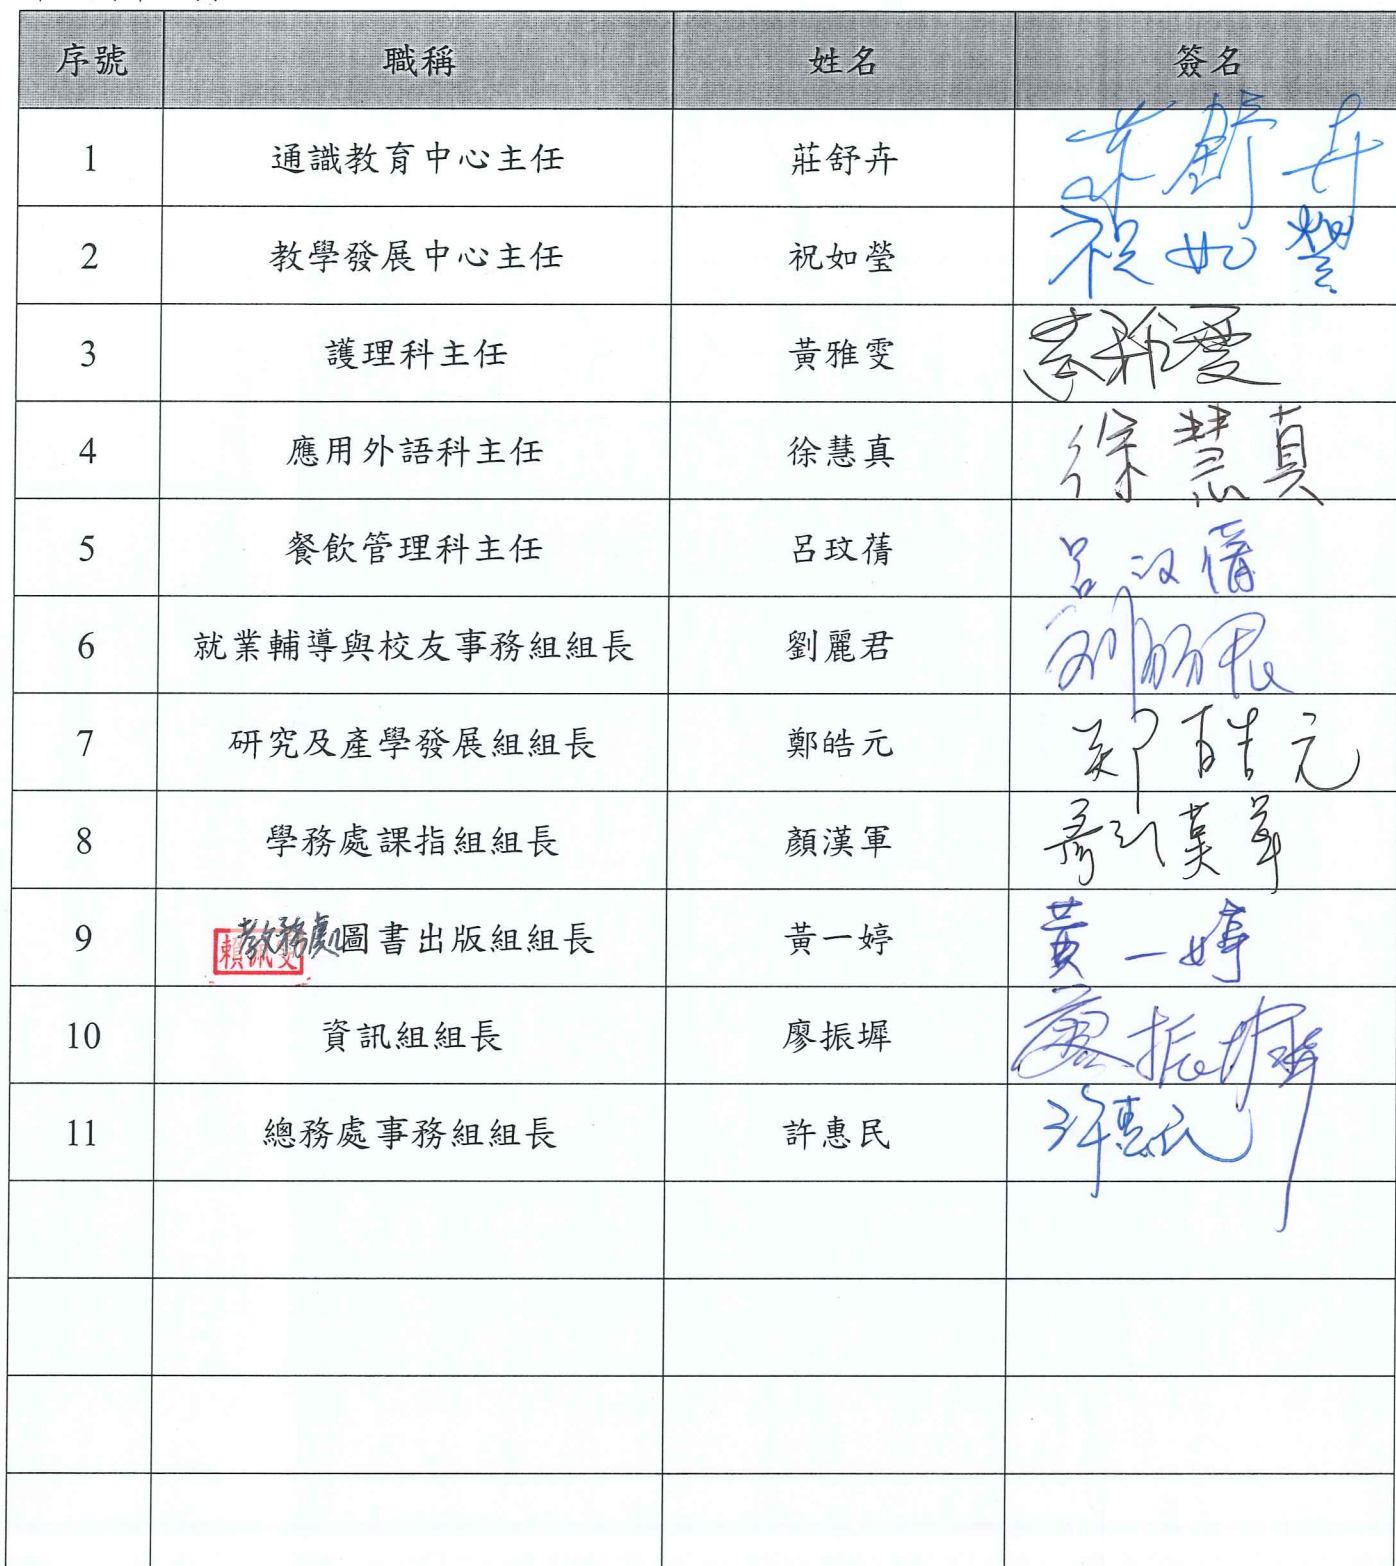 序號 職稱 姓名 簽名
1 通識教育中心主任 莊舒卉 莊舒卉
2 教學發展中心主任 祝如瑩 祝如瑩
3 護理科主任 黃雅雯 黃雅雯
4 應用外語科主任 徐慧真 徐慧真
5 餐飲管理科主任 呂玟蒨 呂玟蒨
6 就業輔導與校友事務組組長 劉麗君 劉麗君
7 研究及產學發展組組長 鄭皓元 鄭皓元
8 學務處課指組組長 顏漢軍 顏漢軍
9 教務處圖書出版組組長 黃一婷 黃一婷
10 資訊組組長 廖振墀 廖振墀
11 總務處事務組組長 許惠民 許惠民